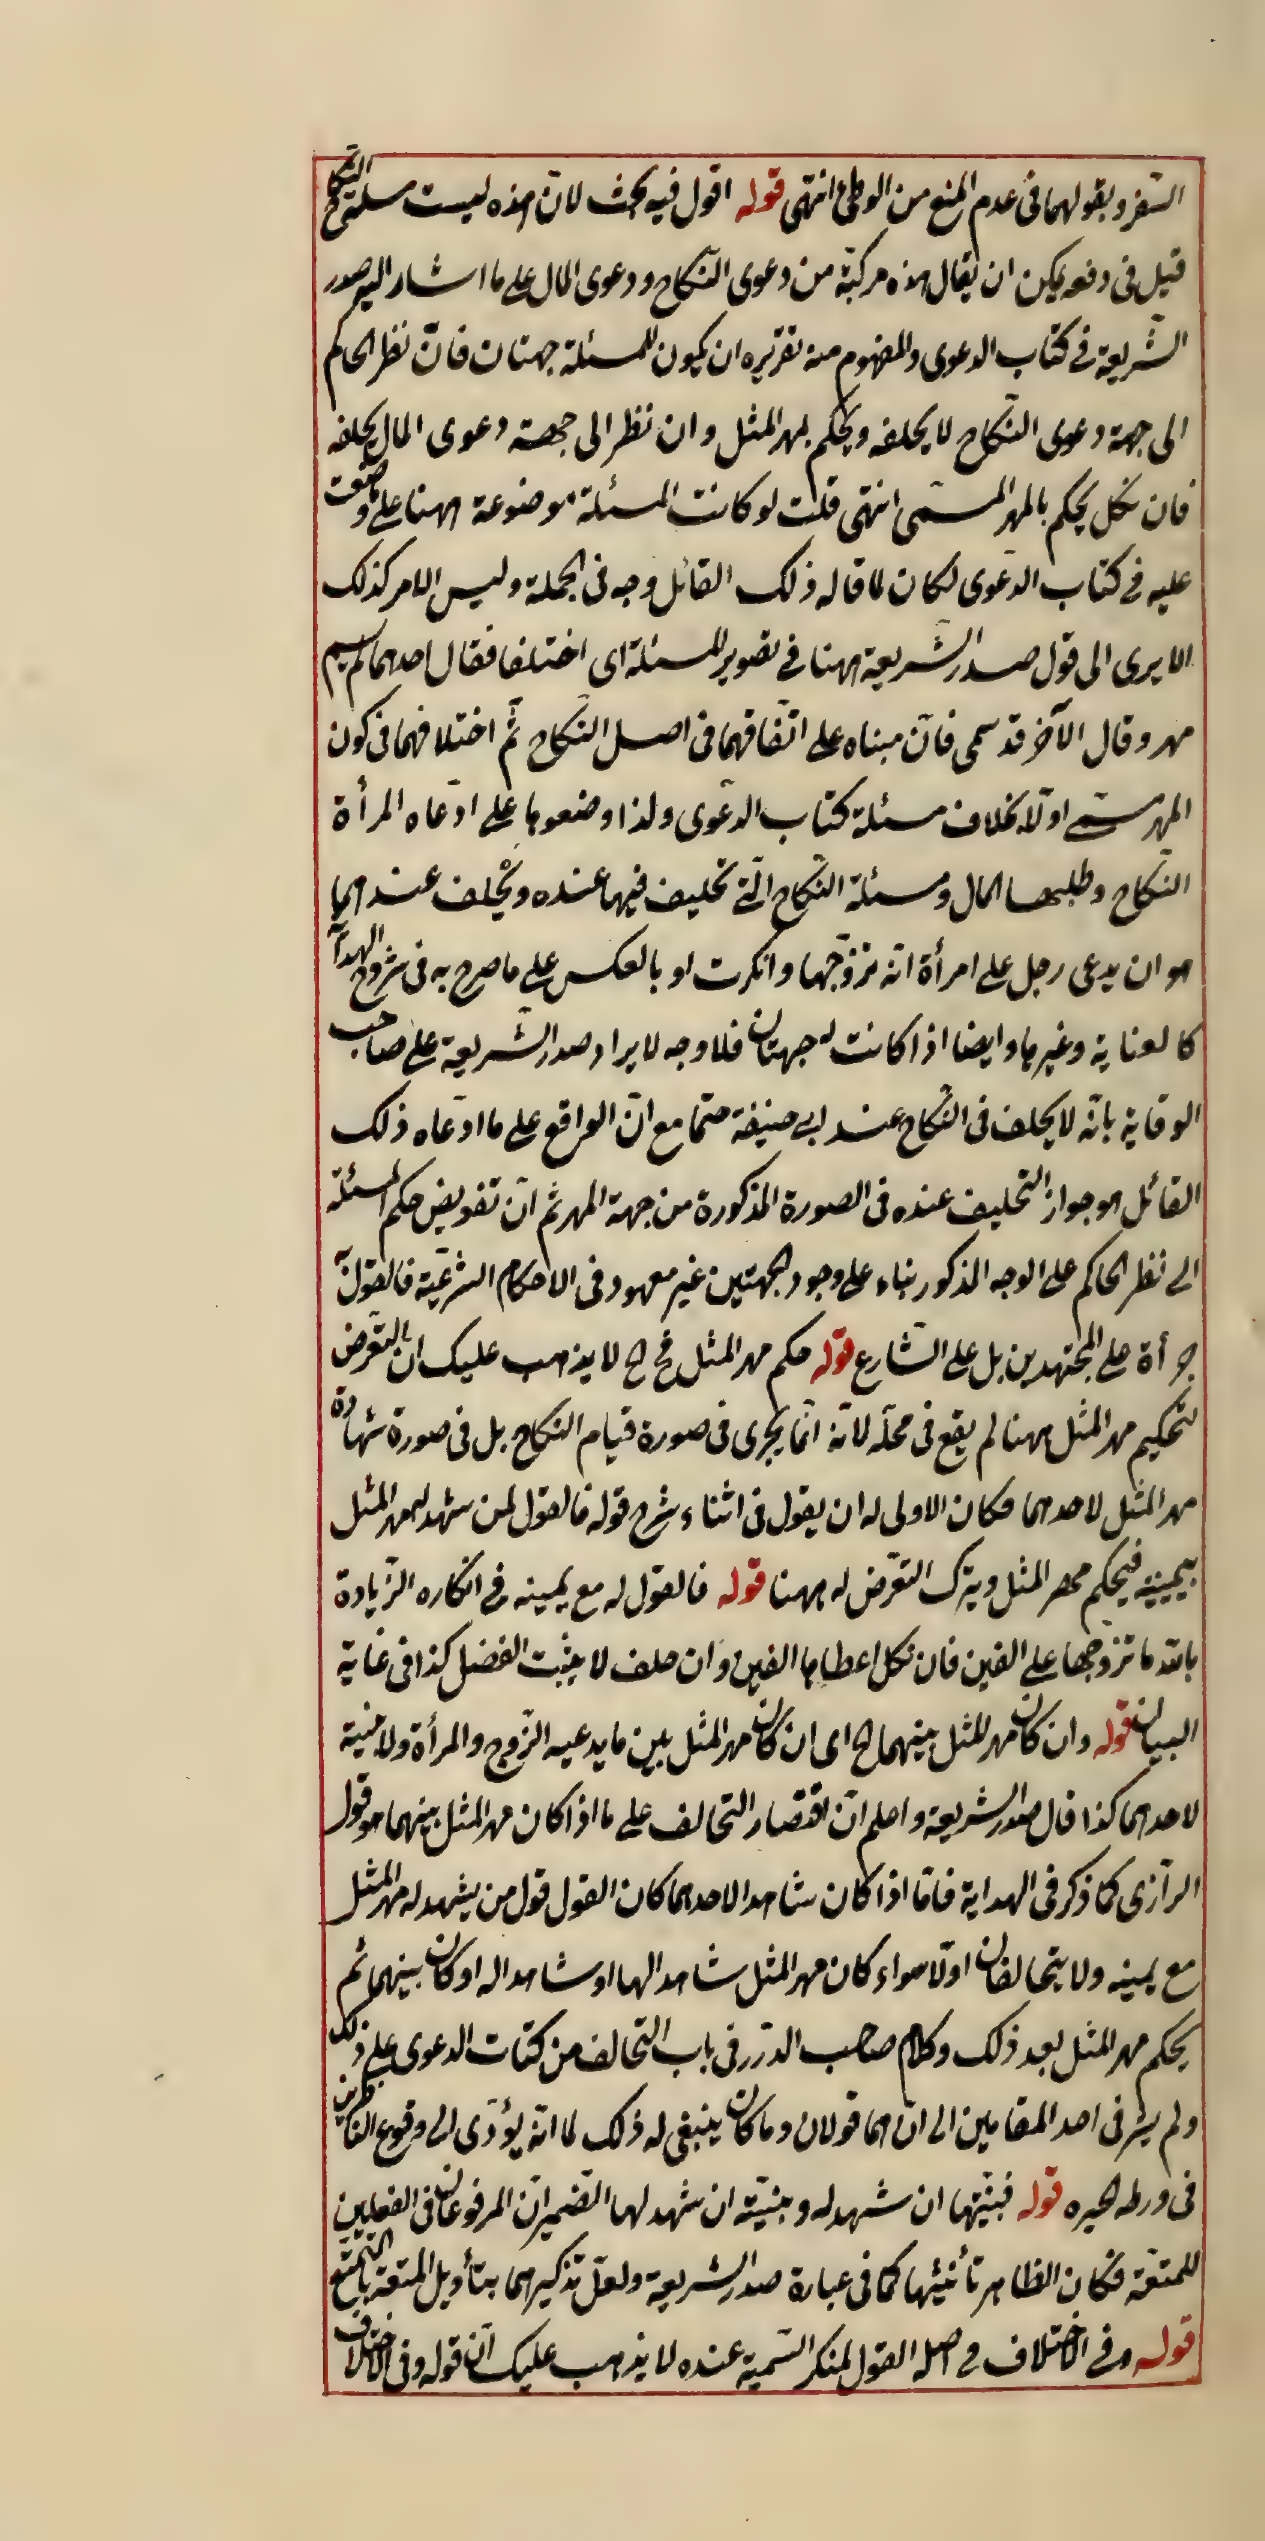 السفر وبقولهما فى عدم المنع من الوطئ انتهى قوله اقول فيه بحث لان هذه ليست مسئلة النكاح
قيل فى دفعه يمكن ان يقال هذه مركبة من دعوى النكاح ودعوى المال على ما اشار اليه صدر
الشريعة فى كتاب الدعوى والمفهوم من تقريره ان يكون للمسئلة جهتان فان نظر الحاكم
الى جهة دعوى النكاح لا يحلفه ويحكم بمهر المثل وان نظر الى جهة دعوى المال يحلفه
فان نكل يحكم بالمهر المسمى انتهى قلت لو كانت المسئلة موضوعة ههنا على ما وضعت
عليه فى كتاب الدعوى لكان لما قاله ذلك القائل وجه فى الجملة وليس الامر كذلك
الا يرى الى قول صدر الشريعة ههنا فى تصوير المسئلة اى اختلفا فقال احدهما لم يسم
مهر وقال الآخر قد سمى فان مبناه على اتفاقهما فى اصل النكاح ثم اختلافهما فى كون
المهر مسمى اولا بخلاف مسئلة كتاب الدعوى ولذا وضعوها على ادعاه المرأة
النكاح وطلبها المال ومسئلة النكاح التى تحليف فيها عنده ويحلف عندهما
هو ان يدعى رجل على امرأة انه تزوجها وانكرت او بالعكس على ما صرح به فى شروح الهداية
كالعناية وغيرها وايضا اذا كانت له جهتان فلا وجه لايراد صدر الشريعة على صاحب
الوقاية بانه لا يحلف فى النكاح عند ابى حنيفة حتما مع ان الواقع على ما ادعاه ذلك
القائل هو جواز التحليف عنده فى الصورة المذكورة من جهة المهر ثم ان تفويض حكم المسئلة
الى نظر الحاكم على الوجه المذكور بناء على وجود الجهتين غير معهود فى الاحكام الشرعية فالقول به
جرأة على المجتهدين بل على الشارع قوله حكم مهر المثل فح الخ لا يذهب عليك ان التعرض
لتحكيم مهر المثل ههنا لم يقع فى محله لانه انما يجرى فى صورة قيام النكاح بل فى صورة شهادة
مهر المثل لاحدهما فكان الاولى له ان يقول فى اثناء شرح قوله فالقول لمن شهد له مهر المثل
بيمينه فيحكم مهر المثل ويترك التعرض له ههنا قوله فالقول له مع يمينه فى انكاره الزيادة
بالله ما تزوجها على الفين فان نكل اعطاها الفين وان حلف لا يثبت الفضل كذا فى غاية
البيان قوله وان كان مهر المثل بينهما الخ اى ان كان مهر المثل بين ما يدعيه الزوج والمرأة ولا بينة
لاحدهما كذا قال صدر الشريعة واعلم ان اقتصار التحالف على ما اذا كان مهر المثل بينهما هو قول
الرازى كما ذكر فى الهداية فاما اذا كان شاهدا لاحدهما كان القول قول من يشهد له مهر المثل
مع يمينه ولا يتحالفان اولا سواء كان مهر المثل شاهدا لها او شاهدا له او كان بينهما ثم
يحكم مهر المثل بعد ذلك وكلام صاحب الدرر فى باب التحالف من كتاب الدعوى على ذلك
ولم يشر فى احد المقامين الى ان هما قولان وما كان ينبغى له ذلك لما انه يؤدى الى وقوع الناظرين
فى ورطه الحيره قوله فبينتها ان شهد له وبينته ان شهد لها الضميران المرفوعان فى الفعلين
للمتعة فكان الظاهر تأنيثها كما فى عبارة صدر الشريعة ولعل تذكيرهما بتأويل المتعة بالتمتع
قوله وفى الاختلاف فى اصله القول لمنكر التسمية عنده لا يذهب عليك ان قوله وفى الاختلاف